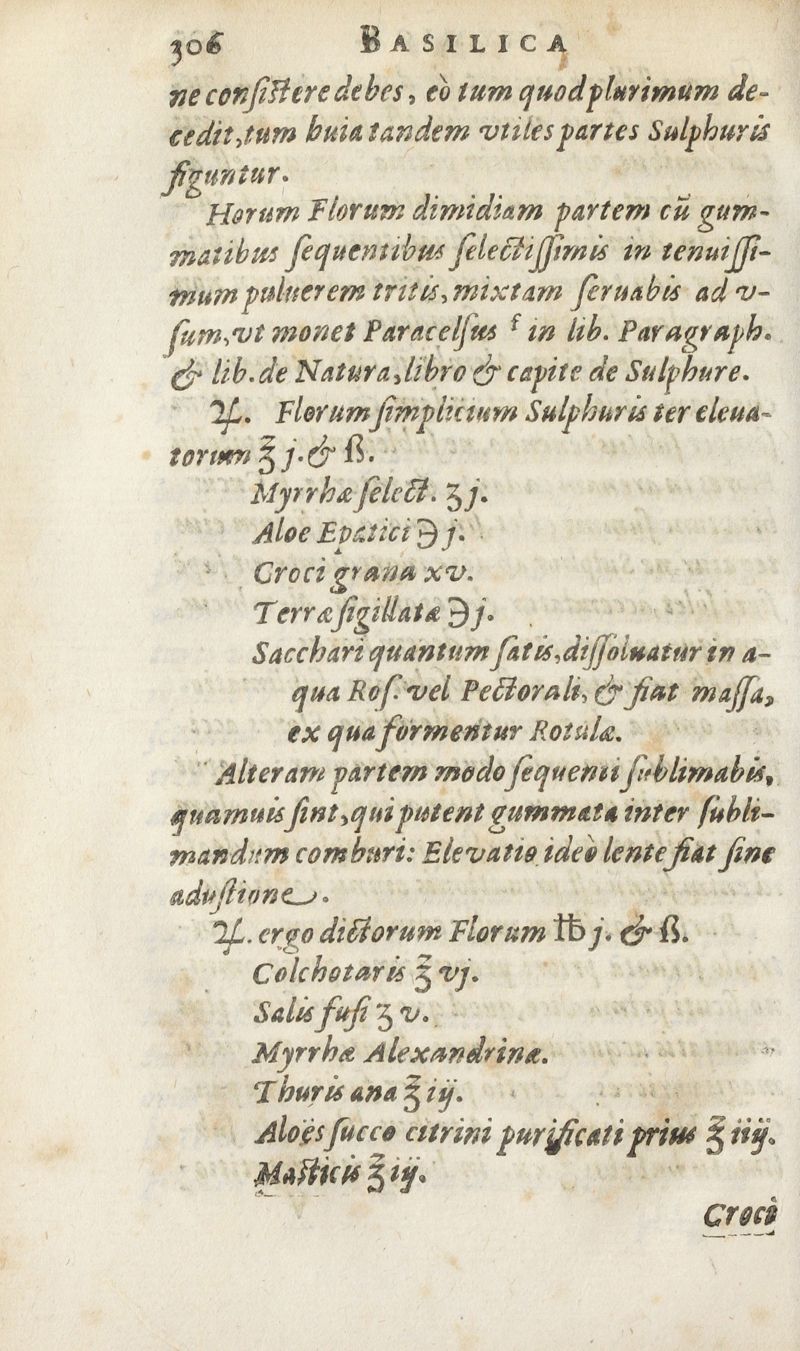 306 BASILICA
ne conſiſtere debes, eò tum quod plurimum de-
cedit, tum huia tandem vtiles partes Sulphuris
figuntur.
Horum Florum dimidiam partem cũ gum-
matibus ſequentibus ſelectiſſimis in tenuiſſi-
mum puluerem tritis, mixtam ſeruabis ad v-
ſum, vt monet Paracelſus f in lib. Paragraph.
& lib. de Natura, libro & capite de Sulphure.
♃. Florum ſimplicium Sulphuris ter eleua-
torum ℥ j. & ß.
Myrrhæ ſelect. ʒ j.
Aloe Epatici ℈ j.
Croci grana xv.
Terræ ſigillatæ ℈ j.
Sacchari quantum ſatis, diſſoluatur in a-
qua Roſ. vel Pectorali, & fiat maſſa,
ex qua formentur Rotulæ.
Alteram partem modo ſequenti ſublimabis,
quamuis ſint, qui putent gummata inter ſubli-
mandum comburi: Elevatio ideò lente fiat ſine
aduſtione.
♃. ergo dictorum Florum ℔ j. & ß.
Colchotaris ℥ vj.
Salis fuſi ʒ v.
Myrrhæ Alexandrinæ.
Thuris ana ℥ iij.
Aloës ſucco citrini purificati prius ℥ iiij.
Maſticis ℥ iij.
Croci